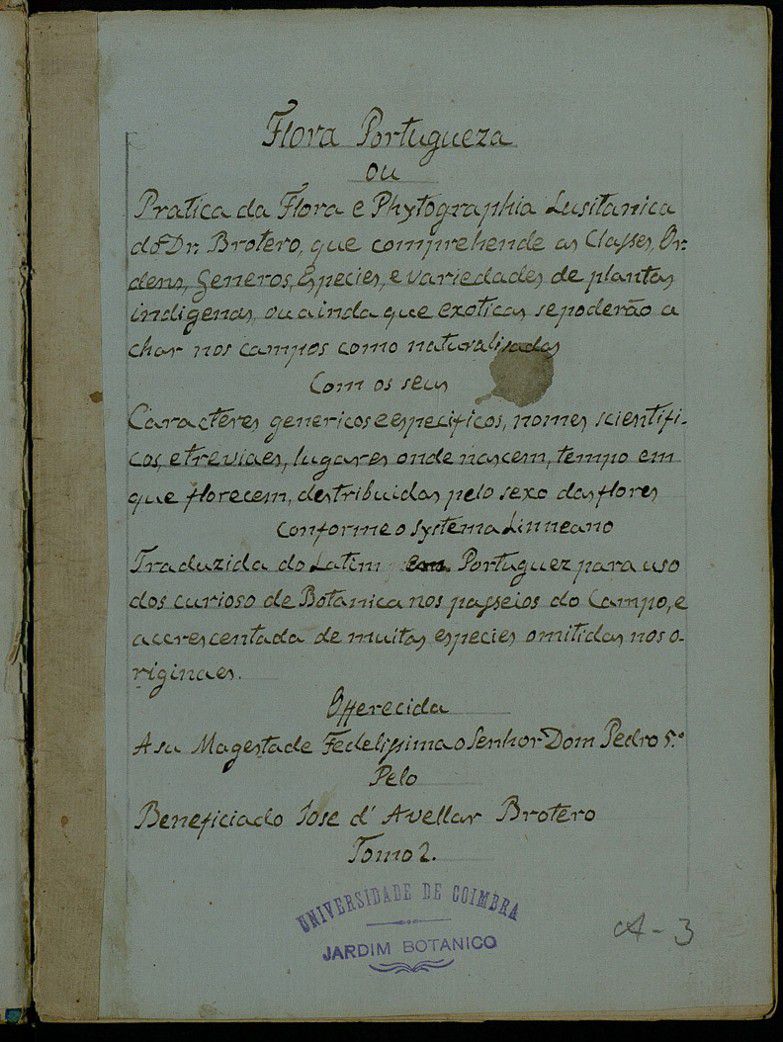 Flora Portugueza
ou
Pratica da Flora e Phytographia Lusitanica
do Dr. Brotero, que comprehende as Classes, Or-
dens, Generos, Especies, e variedades de plantas
indigenas, ou ainda que exoticas se poderão a
char nos campos como naturalisadas
Com os seus
Caracteres genericos e especificos, nomes scientifi-
cos, e treviaes, lugares onde nascem, tempo em
que florecem, destribuidas pelo sexo das flores
conforme o systema Linneano
Traduzida do Latim em Portuguez para uso
dos curioso de Botanica nos passeios do Campo, e
accrescentada de muitas especies omitidas nos o-
riginaes.
Offerecida
A su Magestade Fedelissima o Senhor Dom Pedro 5.º
Pelo
Beneficiado Jose d'Avellar Brotero
Tomo 2.
UNIVERSIDADE DE COIMBRA
JARDIM BOTANICO
A-3